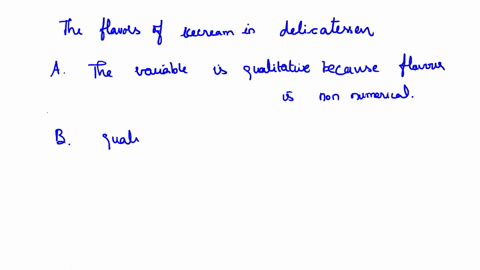 The flavors of icecream in delicatessen
A. The variable is qualitative because flavour
is non numerical.
B. quali